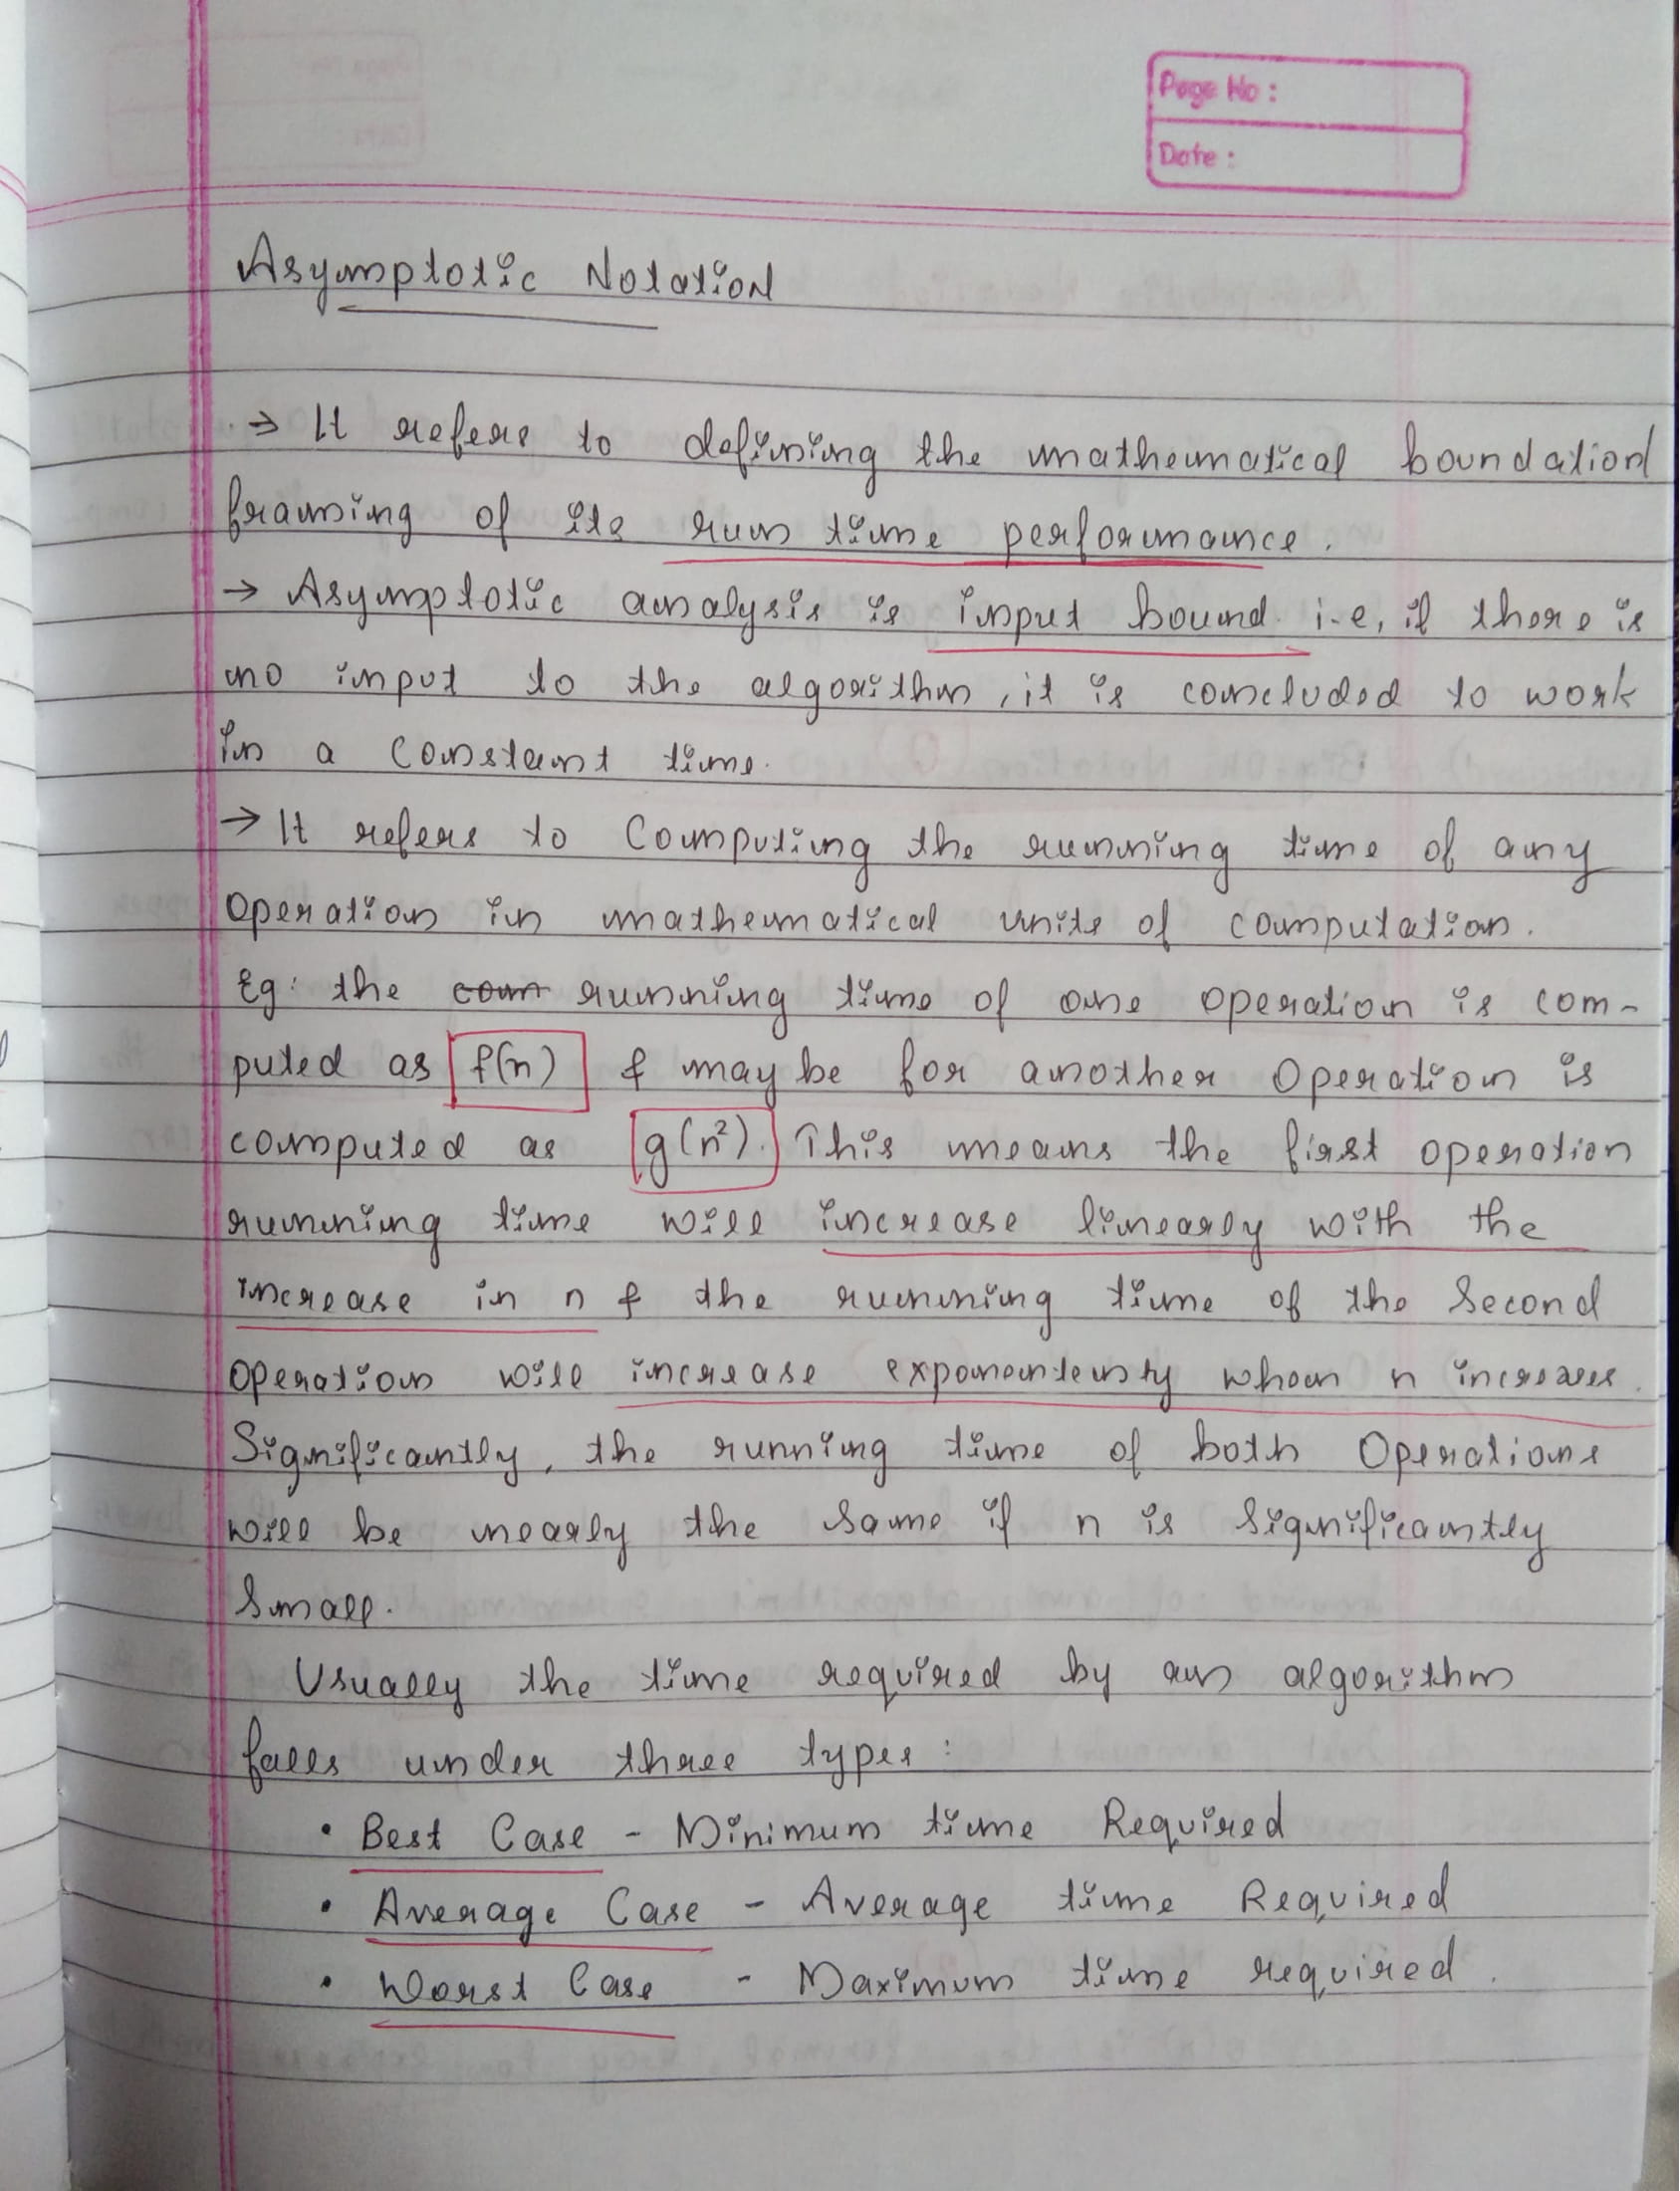 Page No :
Date :
Asymptotic Notation
→ It refers to defining the mathematical boundation
framing of its run time performance.
→ Asymptotic analysis is input bound i.e, if there is
no input to the algorithm, it is concluded to work
in a constant time.
→ It refers to Computing the running time of any
operation in mathematical units of computation.
Eg: the running time of one operation is com-
puted as f(n) & may be for another operation is
computed as g(n²). This means the first operation
running time will increase linearly with the
increase in n & the running time of the Second
operation will increase when n increases.
Significantly, the running time of both Operations
will be nearly the same if n is significantly
small.
Usually the time required by an algorithm
falls under three types:
• Best Case - Minimum time Required
• Average Case - Average time Required
• Worst Case - Maximum time required.